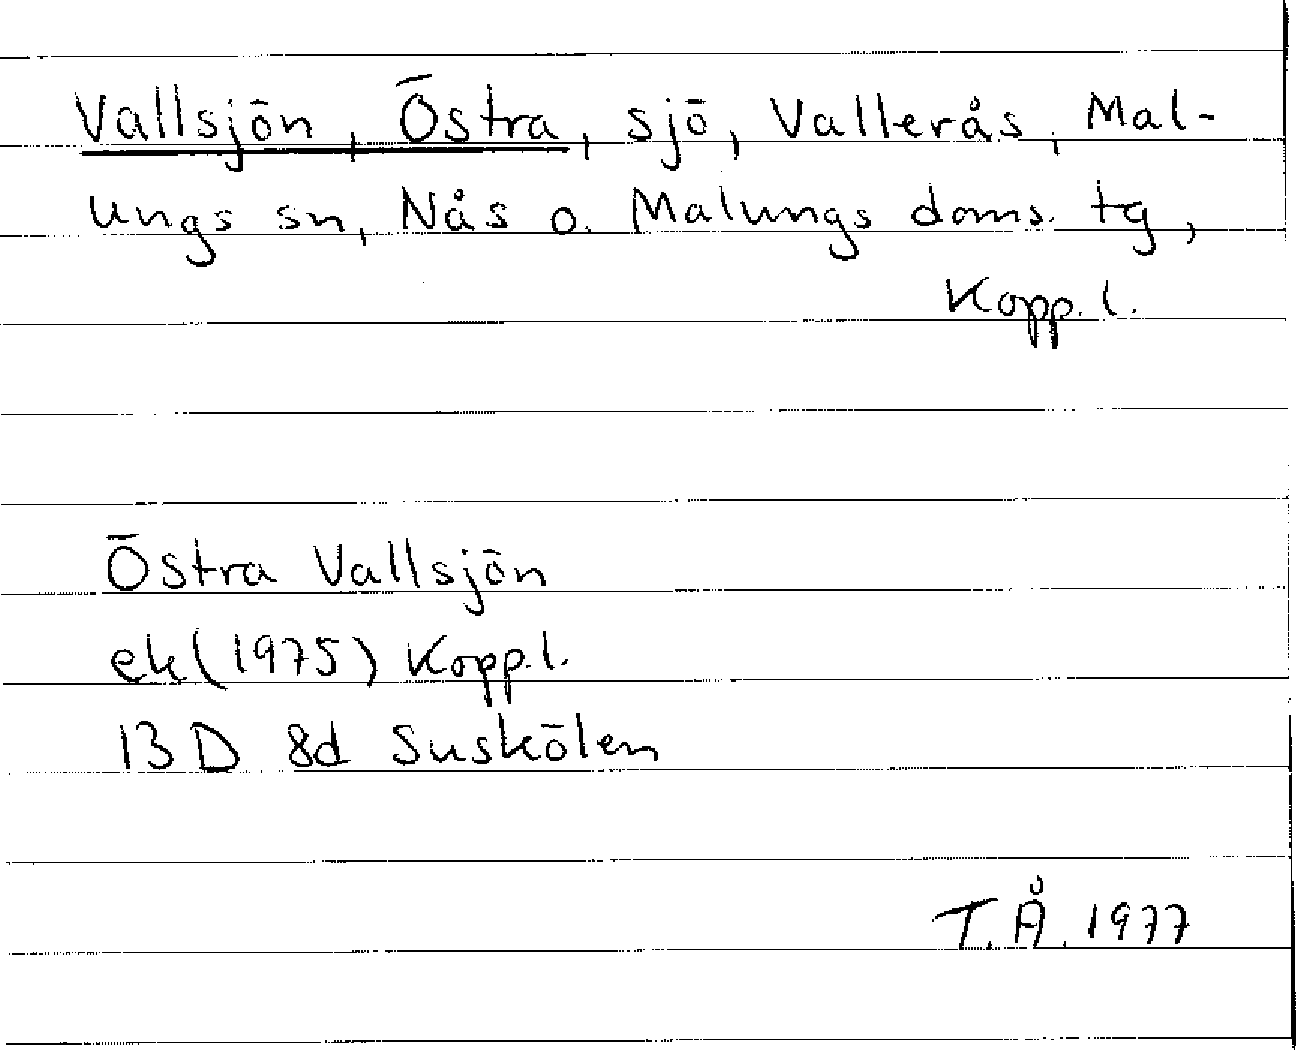 Vallsjön, Östra, sjö, Vallerås, Mal-
ungs sn, Nås o. Malungs doms. tg,
Kopp. l.
Östra Vallsjön
ek (1975) Kopp. l.
13 D 8d Suskölen
T. Å. 1977